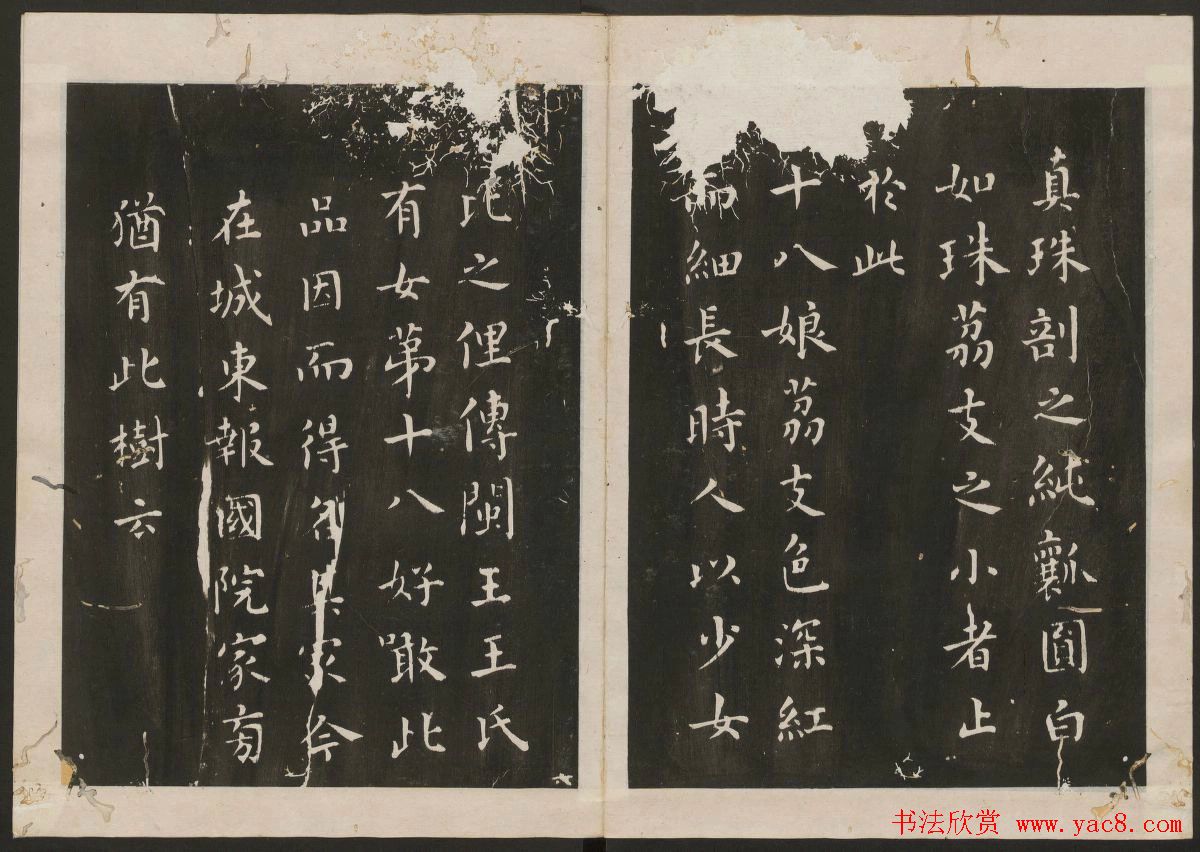 真珠剖之純瓤圓白
如珠荔支之小者止
於此
十八娘荔支色深紅
而細長時人以少女
比之俚傳閩王王氏
有女第十八好噉此
品因而得名其冢今
在城東報國院冢旁
猶有此樹云
书法欣赏 www.yac8.com